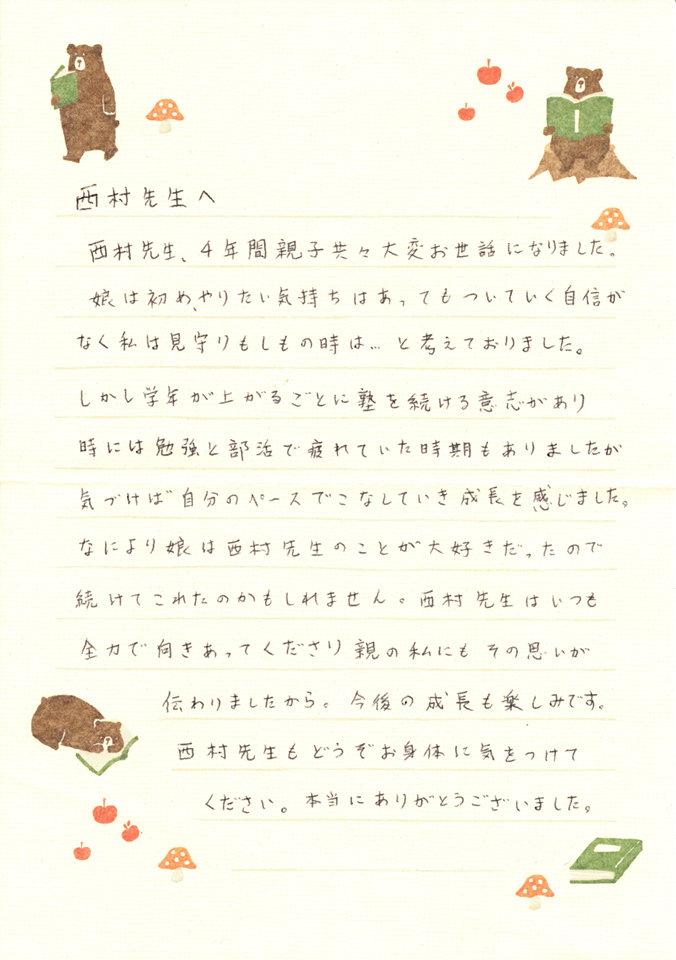 西村先生へ
西村先生、4年間親子共々大変お世話になりました。
娘は初め、やりたい気持ちはあってもついていく自信が
なく私は見守りもしもの時は…と考えておりました。
しかし学年が上がるごとに塾を続ける意志があり
時には勉強と部活で疲れていた時期もありましたが
気づけば自分のペースでこなしていき成長を感じました。
なにより娘は西村先生のことが大好きだったので
続けてこれたのかもしれません。西村先生はいつも
全力で向きあってくださり親の私にもその思いが
伝わりましたから。今後の成長も楽しみです。
西村先生もどうぞお身体に気をつけて
ください。本当にありがとうございました。